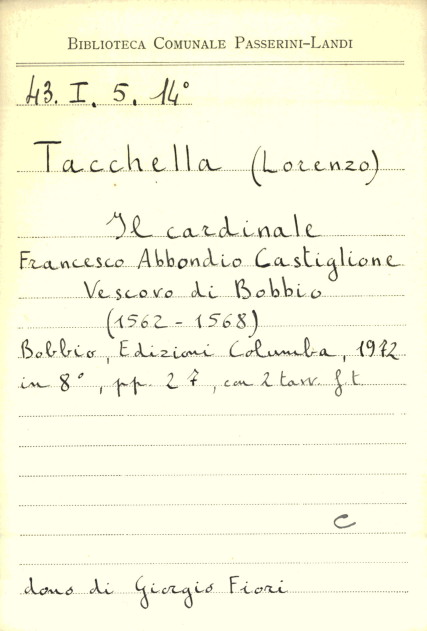 BIBLIOTECA COMUNALE PASSERINI-LANDI
43. I. 5. 14°
Tacchella (Lorenzo)
Il cardinale
Francesco Abbondio Castiglione
Vescovo di Bobbio
(1562 - 1568)
Bobbio, Edizioni Columba, 1972
in 8°, pp. 27, con 2 tavv. f.t.
C
dono di Giorgio Fiori